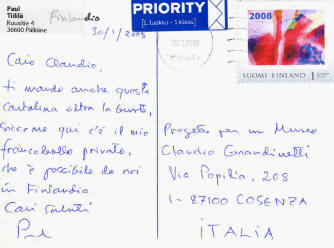 Paul
Tiililä
Kuusitie 4
36600 Pälkäne
Finlandia
30/1/2008
PRIORITY
[1. Luokka - 1 klass]
2008
SUOMI FINLAND 1
Caro Claudio,
ti mando anche questa
cartolina oltre la busta,
siccome qui c'è il mio
francobollo privato,
che è possibile da noi
in Finlandia.
Cari saluti
Paul
Progetto per un Museo
Claudio Grandinetti
Via Popilia, 208
I- 87100 COSENZA
ITALIA